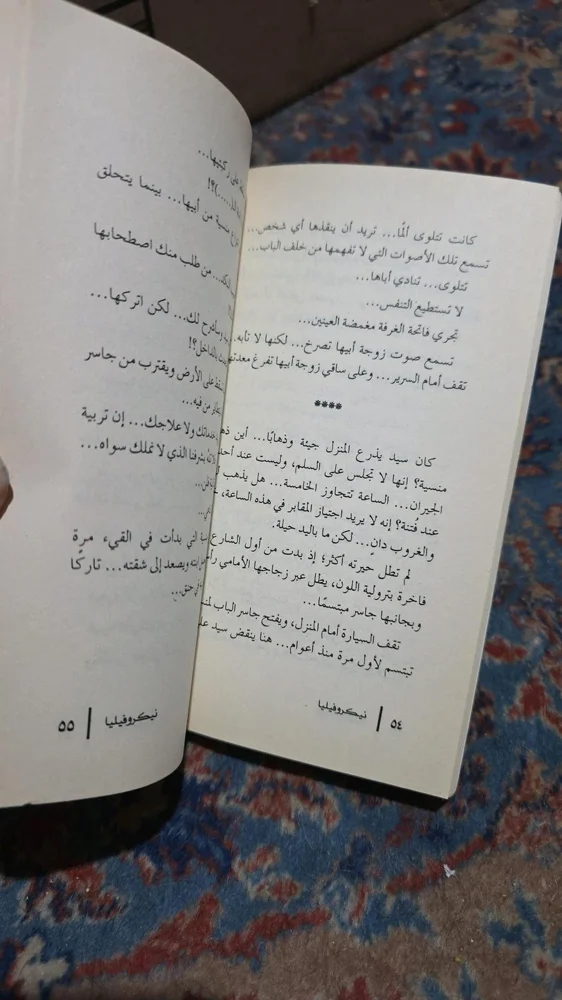 كانت تتلوى ألمًا... تريد أن ينقذها أي شخص...
تسمع تلك الأصوات التي لا تفهمها من خلف الباب...
تتلوى... تنادي أباها...
لا تستطيع التنفس...
تجري فاتحة الغرفة مغمضة العينين...
تسمع صوت زوجة أبيها تصرخ... لكنها لا تأبه...
تقف أمام السرير... وعلى ساقي زوجة أبيها تفرغ
****
كان سيد يذرع المنزل جيئة وذهابًا... أين
منسية؟ إنها لا تجلس على السلم، وليست عند
الجيران... الساعة تتجاوز الخامسة... هل يذهب
عند فُتنة؟ إنه لا يريد اجتياز المقابر في هذه الساعة،
والغروب دانٍ... لكن ما باليد حيلة.
لم تطل حيرته أكثر؛ إذ بدت من أول الشارع
فاخرة بترولية اللون، يطل عبر زجاجها الأمامي
وبجانبها جاسر مبتسمًا...
تقف السيارة أمام المنزل، ويفتح جاسر الباب
تبتسم لأول مرة منذ أعوام... هنا ينقض سيد
٥٤ | نيكروفيليا
على ركبتيها...
منسية من أبيها... بينما يتحلق
من طلب منك اصطحابها
لك... لكن اتركها...
بالداخل؟!
على الأرض ويقترب من جاسر
من فيه...
ولا علاجك... إن تربية
بشرفنا الذي لا نملك سواه...
التي بدأت في القيء مرة
ويصعد إلى شقته... تاركًا
حق...
نيكروفيليا | ٥٥